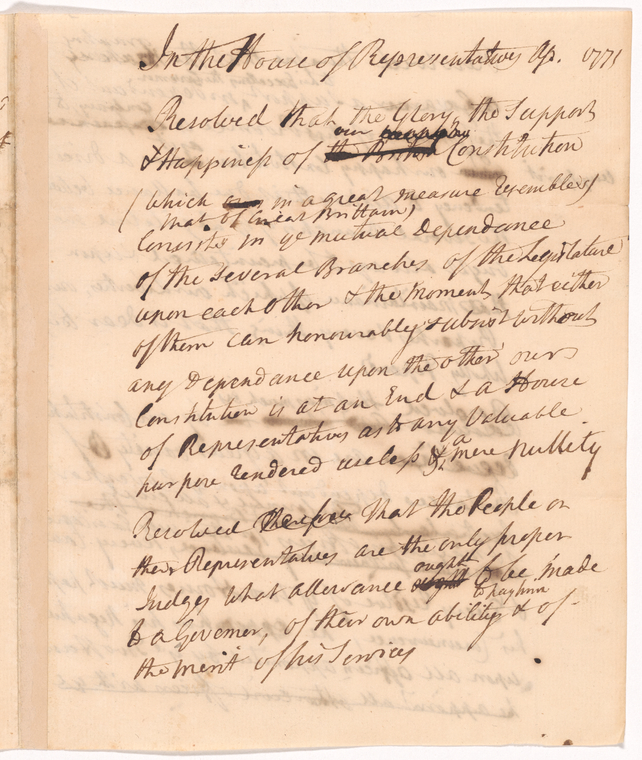 In the House of Representatives Ap. 1771
Resolved that the Glory, the Support
our
& Happiness of the British Constitution
(which in a great measure resembles
that of Great Brittain)
Consists in ye mutual Dependance
of the Several Branches of the Legislature
upon each other & the moment that either
of them can honourably subsist without
any Dependance upon the other our
Constitution is at an End & a House
of Representatives as to any Valuable
purpose rendered useless & a mere Nullity
Resolved Therefore that the People or
their Representatives are the only proper
ought
Judges what allowance ought to be made
to a Governor, of their own ability to pay him & of
the merit of his Services